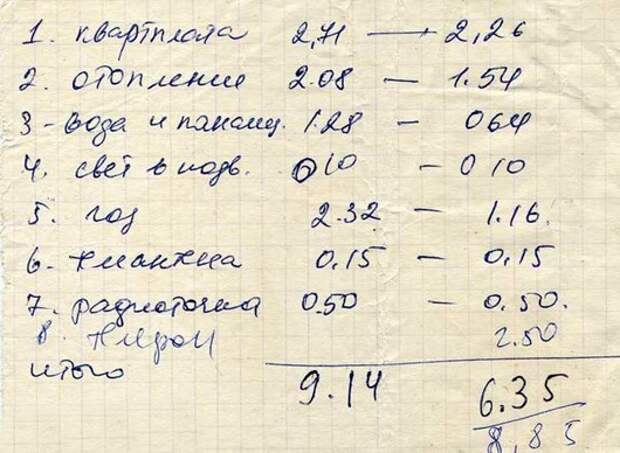 1. квартплата 2,71 — 2,26
2. отопление 2.08 — 1.54
3 - вода и 1.28 - 064
4. свет в подв. 010 - 010
5. газ 2.32 — 1.16.
6. 0.15 — 0.15
7. радиоточка 0.50 - 0.50.
8. 2.50
итого 9.14 6.35
8,85